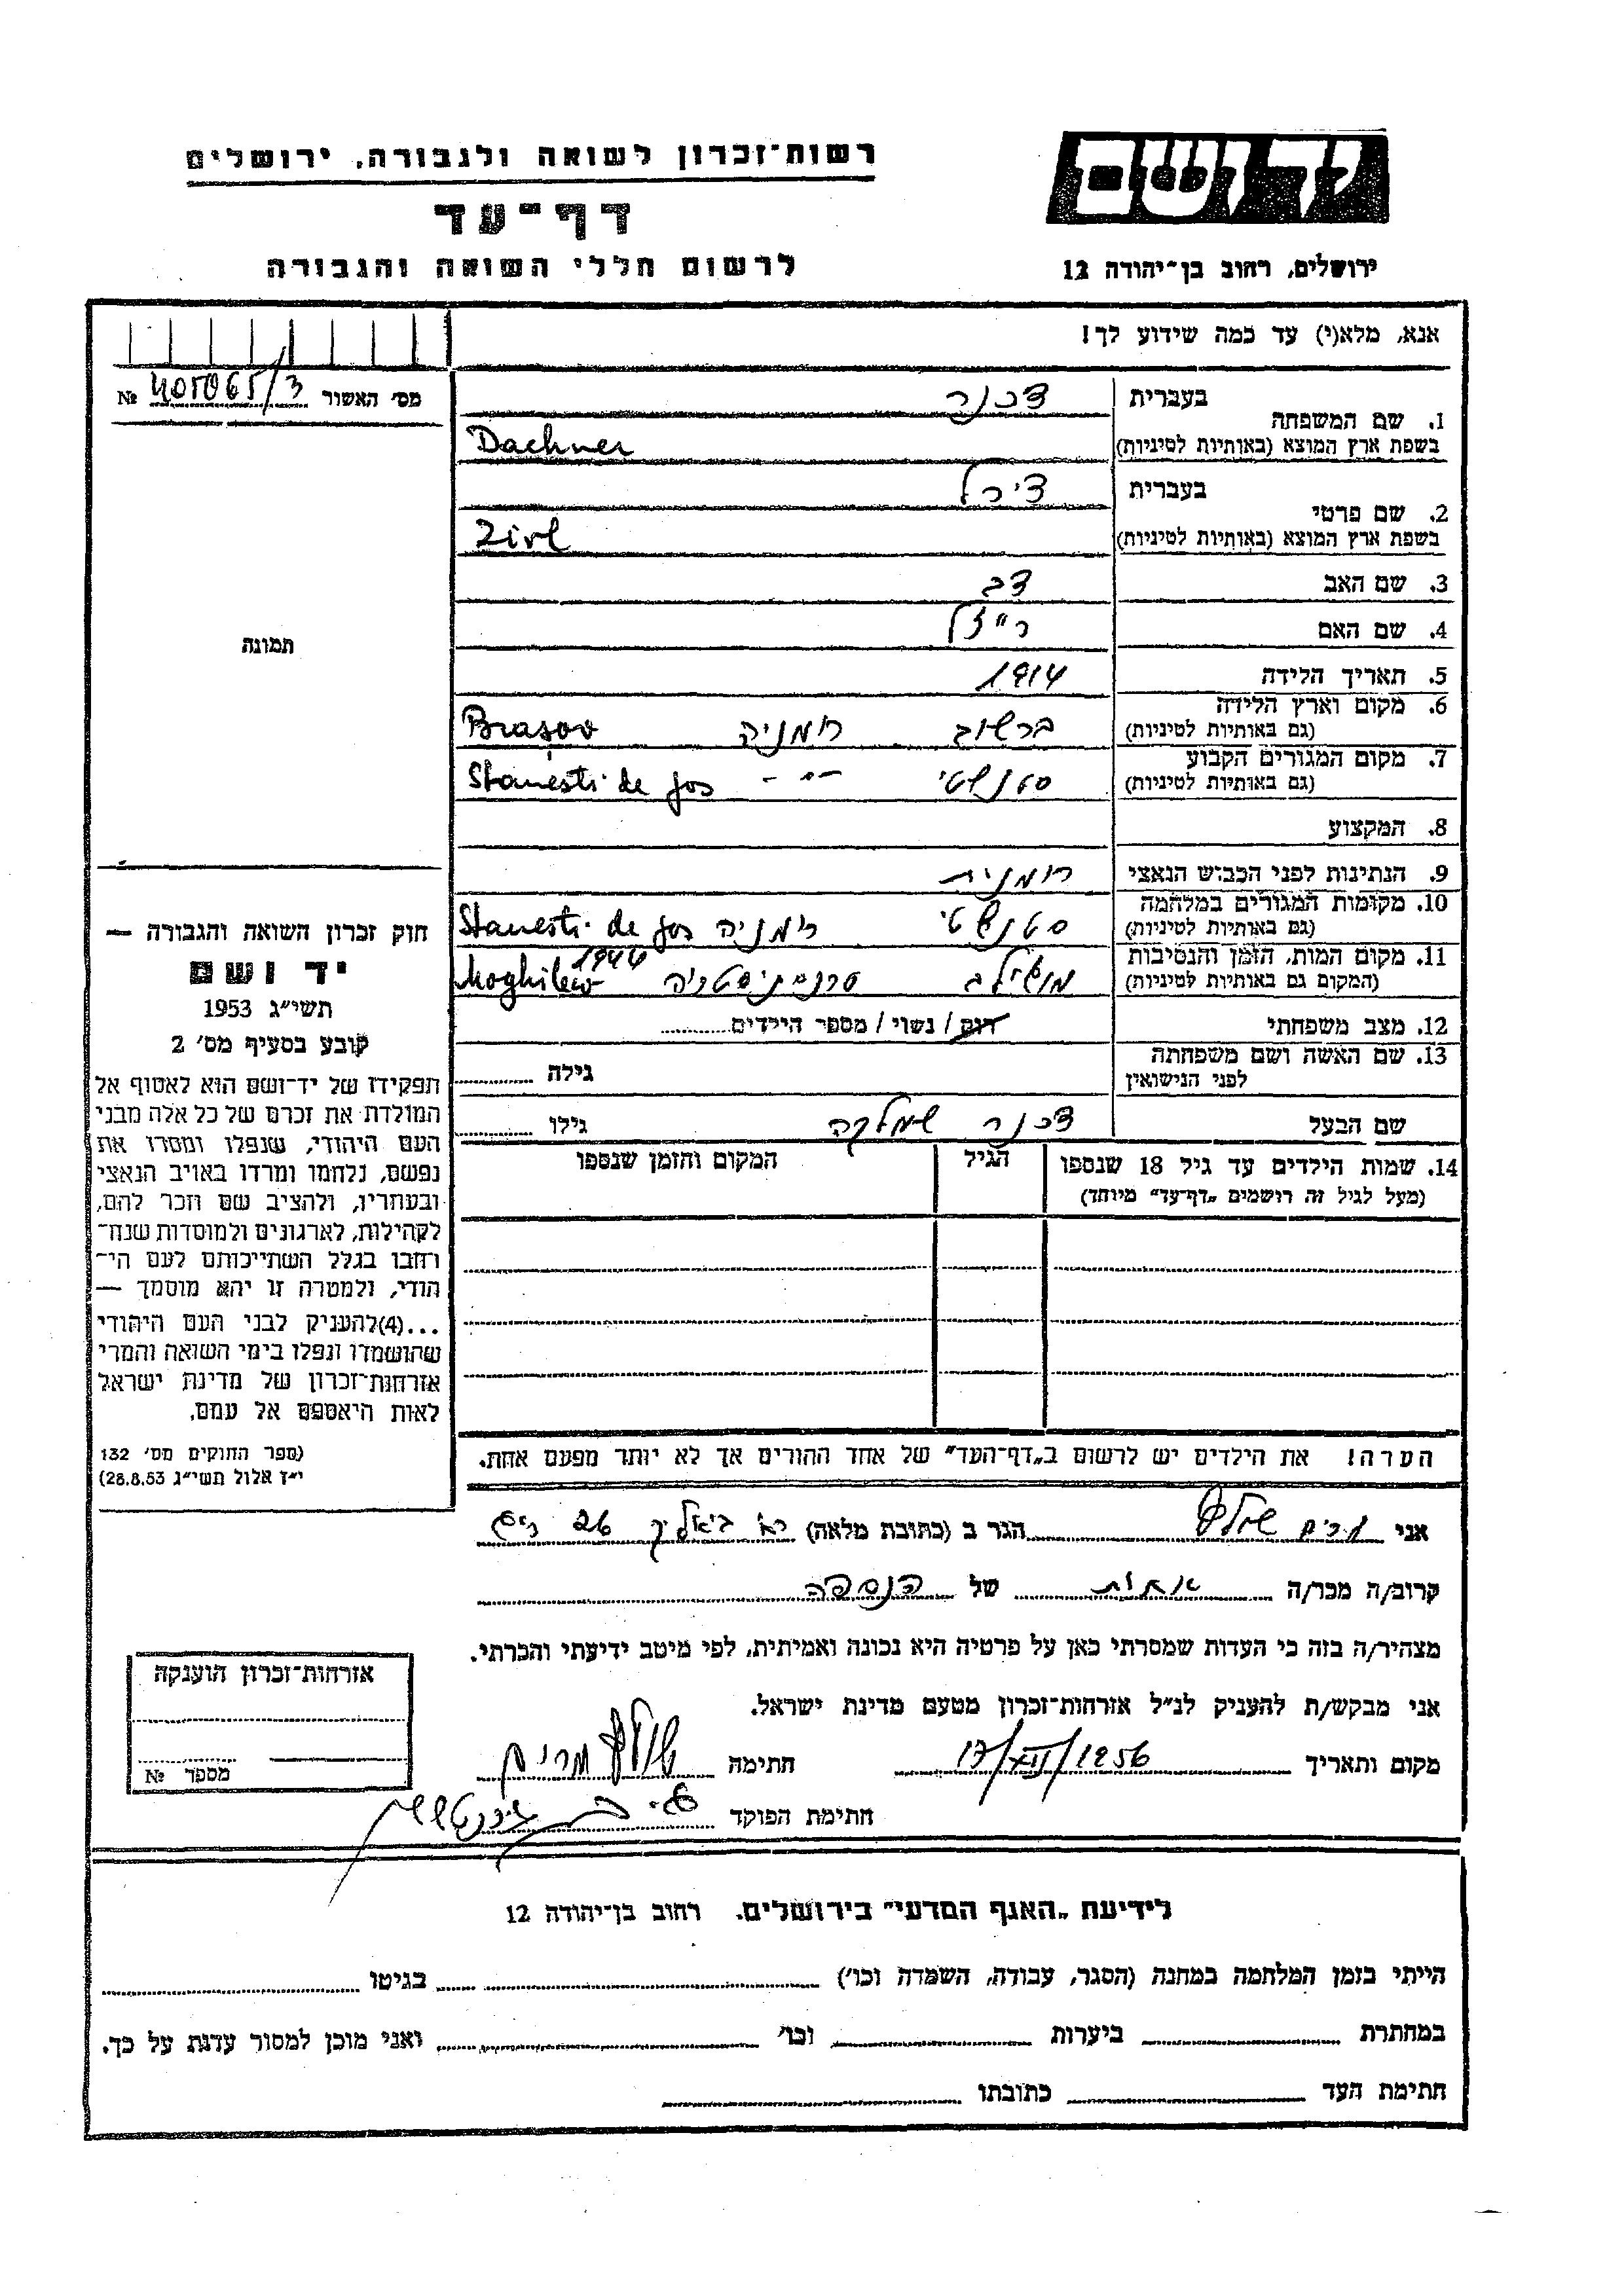 רשות־זכרון לשואה ולגבורה, ירושלים
דף־עד
לרשום חללי השואה והגבורה
יד ושם
ירושלים, רחוב בן־יהודה 12
אנא, מלא(י) עד כמה שידוע לך!
מס׳ האשור № 405065/3
1. שם המשפחה
בעברית דכנר
בשפת ארץ המוצא (באותיות לטיניות) Dachner
2. שם פרטי
בעברית צירל
בשפת ארץ המוצא (באותיות לטיניות) Zirl
3. שם האב דב
4. שם האם רייזל
5. תאריך הלידה 1914
6. מקום וארץ הלידה ברשוב רומניה Braşov
(גם באותיות לטיניות)
7. מקום המגורים הקבוע סטנשטי -"- Stanesti de jos
(גם באותיות לטיניות)
8. המקצוע
9. הנתינות לפני הכבוש הנאצי רומנית
10. מקומות המגורים במלחמה סטנשטי רומניה Stanesti de jos
(גם באותיות לטיניות)
11. מקום המות, הזמן והנסיבות מוגילב טרנסניסטריה 1944 Moghilew
(המקום גם באותיות לטיניות)
12. מצב משפחתי רווק / נשוי / מספר הילדים
13. שם האשה ושם משפחתה
לפני הנישואין
גילה
שם הבעל דכנר שמלקה גילו
14. שמות הילדים עד גיל 18 שנספו
(מעל לגיל זה רושמים „דף־עד״ מיוחד)
הגיל
המקום והזמן שנספו
הערה! את הילדים יש לרשום ב„דף־העד״ של אחד ההורים אך לא יותר מפעם אחת.
תמונה
חוק זכרון השואה והגבורה —
יד ושם
תשי״ג 1953
קובע בסעיף מס׳ 2
תפקידו של יד־ושם הוא לאסוף אל
המולדת את זכרם של כל אלה מבני
העם היהודי, שנפלו ומסרו את
נפשם, נלחמו ומרדו באויב הנאצי
ובעוזריו, ולהציב שם וזכר להם,
לקהילות, לארגונים ולמוסדות שנח־
רחבו בגלל השתייכותם לעם הי־
הודי, ולמטרה זו יהא מוסמך —
...(4)להעניק לבני העם היהודי
שהושמדו ונפלו בימי השואה והמרי
אזרחות־זכרון של מדינת ישראל
לאות היאספם אל עמם.
(ספר החוקים מס׳ 132
י״ז אלול תשי״ג 28.8.53)
אני מרים הגר ב (כתובת מלאה) ביאליק 26
קרוב/ה מכר/ה אחות של הנספה
מצהיר/ה בזה כי העדות שמסרתי כאן על פרטיה היא נכונה ואמיתית, לפי מיטב ידיעתי והכרתי.
אני מבקש/ת להעניק לנ״ל אזרחות־זכרון מטעם מדינת ישראל.
מקום ותאריך 17/XII/1956 חתימה מרים
חתימת הפוקד
אזרחות־זכרון הוענקה
מספר №
לידיעת „האגף המדעי״ בירושלים. רחוב בן־יהודה 12
הייתי בזמן המלחמה במחנה (הסגר, עבודה, השמדה וכו׳) בגיטו
במחתרת ביערות וכו׳ ואני מוכן למסור עדות על כך.
חתימת העד כתובתו